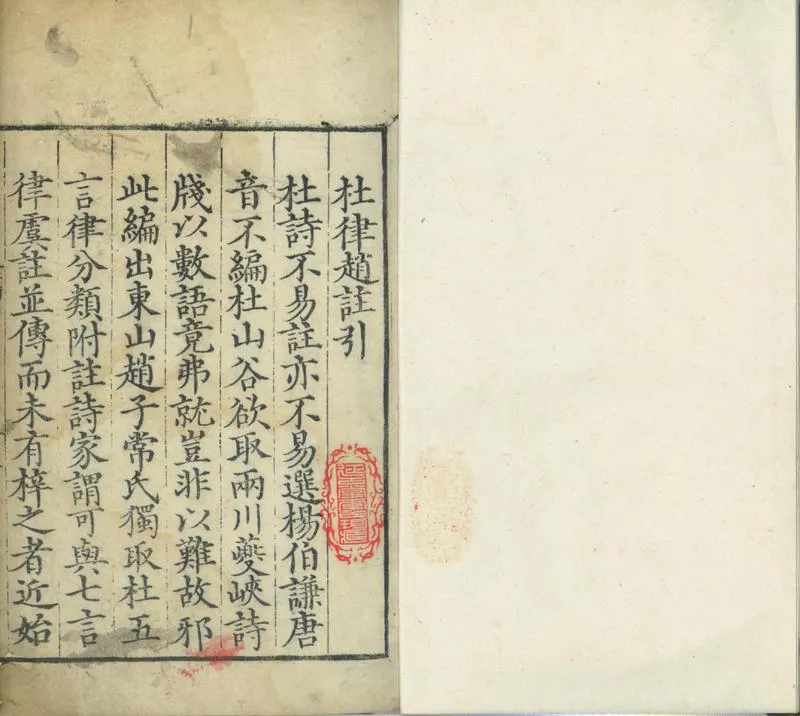 杜律趙註引
杜詩不易註亦不易選楊伯謙唐
音不編杜山谷欲取兩川夔峽詩
牋以數語竟弗就豈非以難故邪
此編出東山趙子常氏獨取杜五
言律分類附註詩家謂可與七言
律虞註並傳而未有梓之者近始